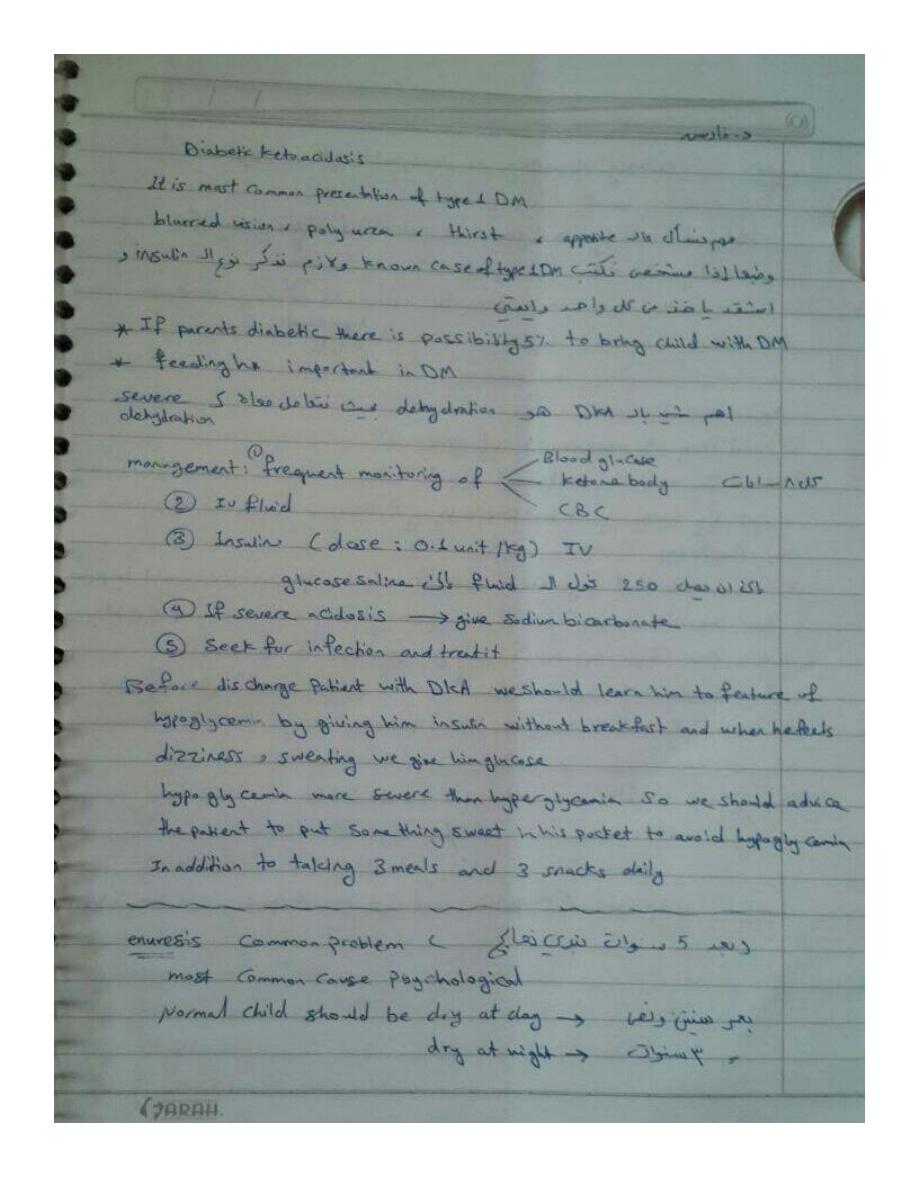 د. قادسيه
Diabetic Ketoacidosis
It is most common presentation of type 1 DM
blurred vision, poly urea, thirst, appetite مهم نسأل عالـ
وطبعا إذا مشخص نكتب known case of type 1 DM ولازم نذكر نوع الـ insulin و
ياخذ من كل واحد
* If parents diabetic there is possibility 5% to bring child with DM
* feeding hx important in DM
اهم شي بالـ DKA هو dehydration بحيث نتعامل معاه severe
dehydration
management: ① frequent monitoring of Blood glucose
ketone body كل ٨ ساعات
CBC
② Iv fluid
③ Insulin (dose: 0.1 unit/kg) IV
250 نحول الـ fluid الى glucose saline
④ If severe acidosis → give sodium bicarbonate
⑤ Seek for infection and treat it
Before discharge Patient with DKA we should learn him to feature of
hypoglycemia by giving him insulin without breakfast and when he feels
dizziness, sweating we give him glucose
hypoglycemia more severe than hyperglycemia so we should advice
the patient to put something sweet in his pocket to avoid hypoglycemia
In addition to taking 3 meals and 3 snacks daily
enuresis Common problem وبعد 5 سنوات نبدي نعالج
most common cause psychological
Normal child should be dry at day → بعمر سنتين ونص
dry at night → ٣ سنوات
SARAH